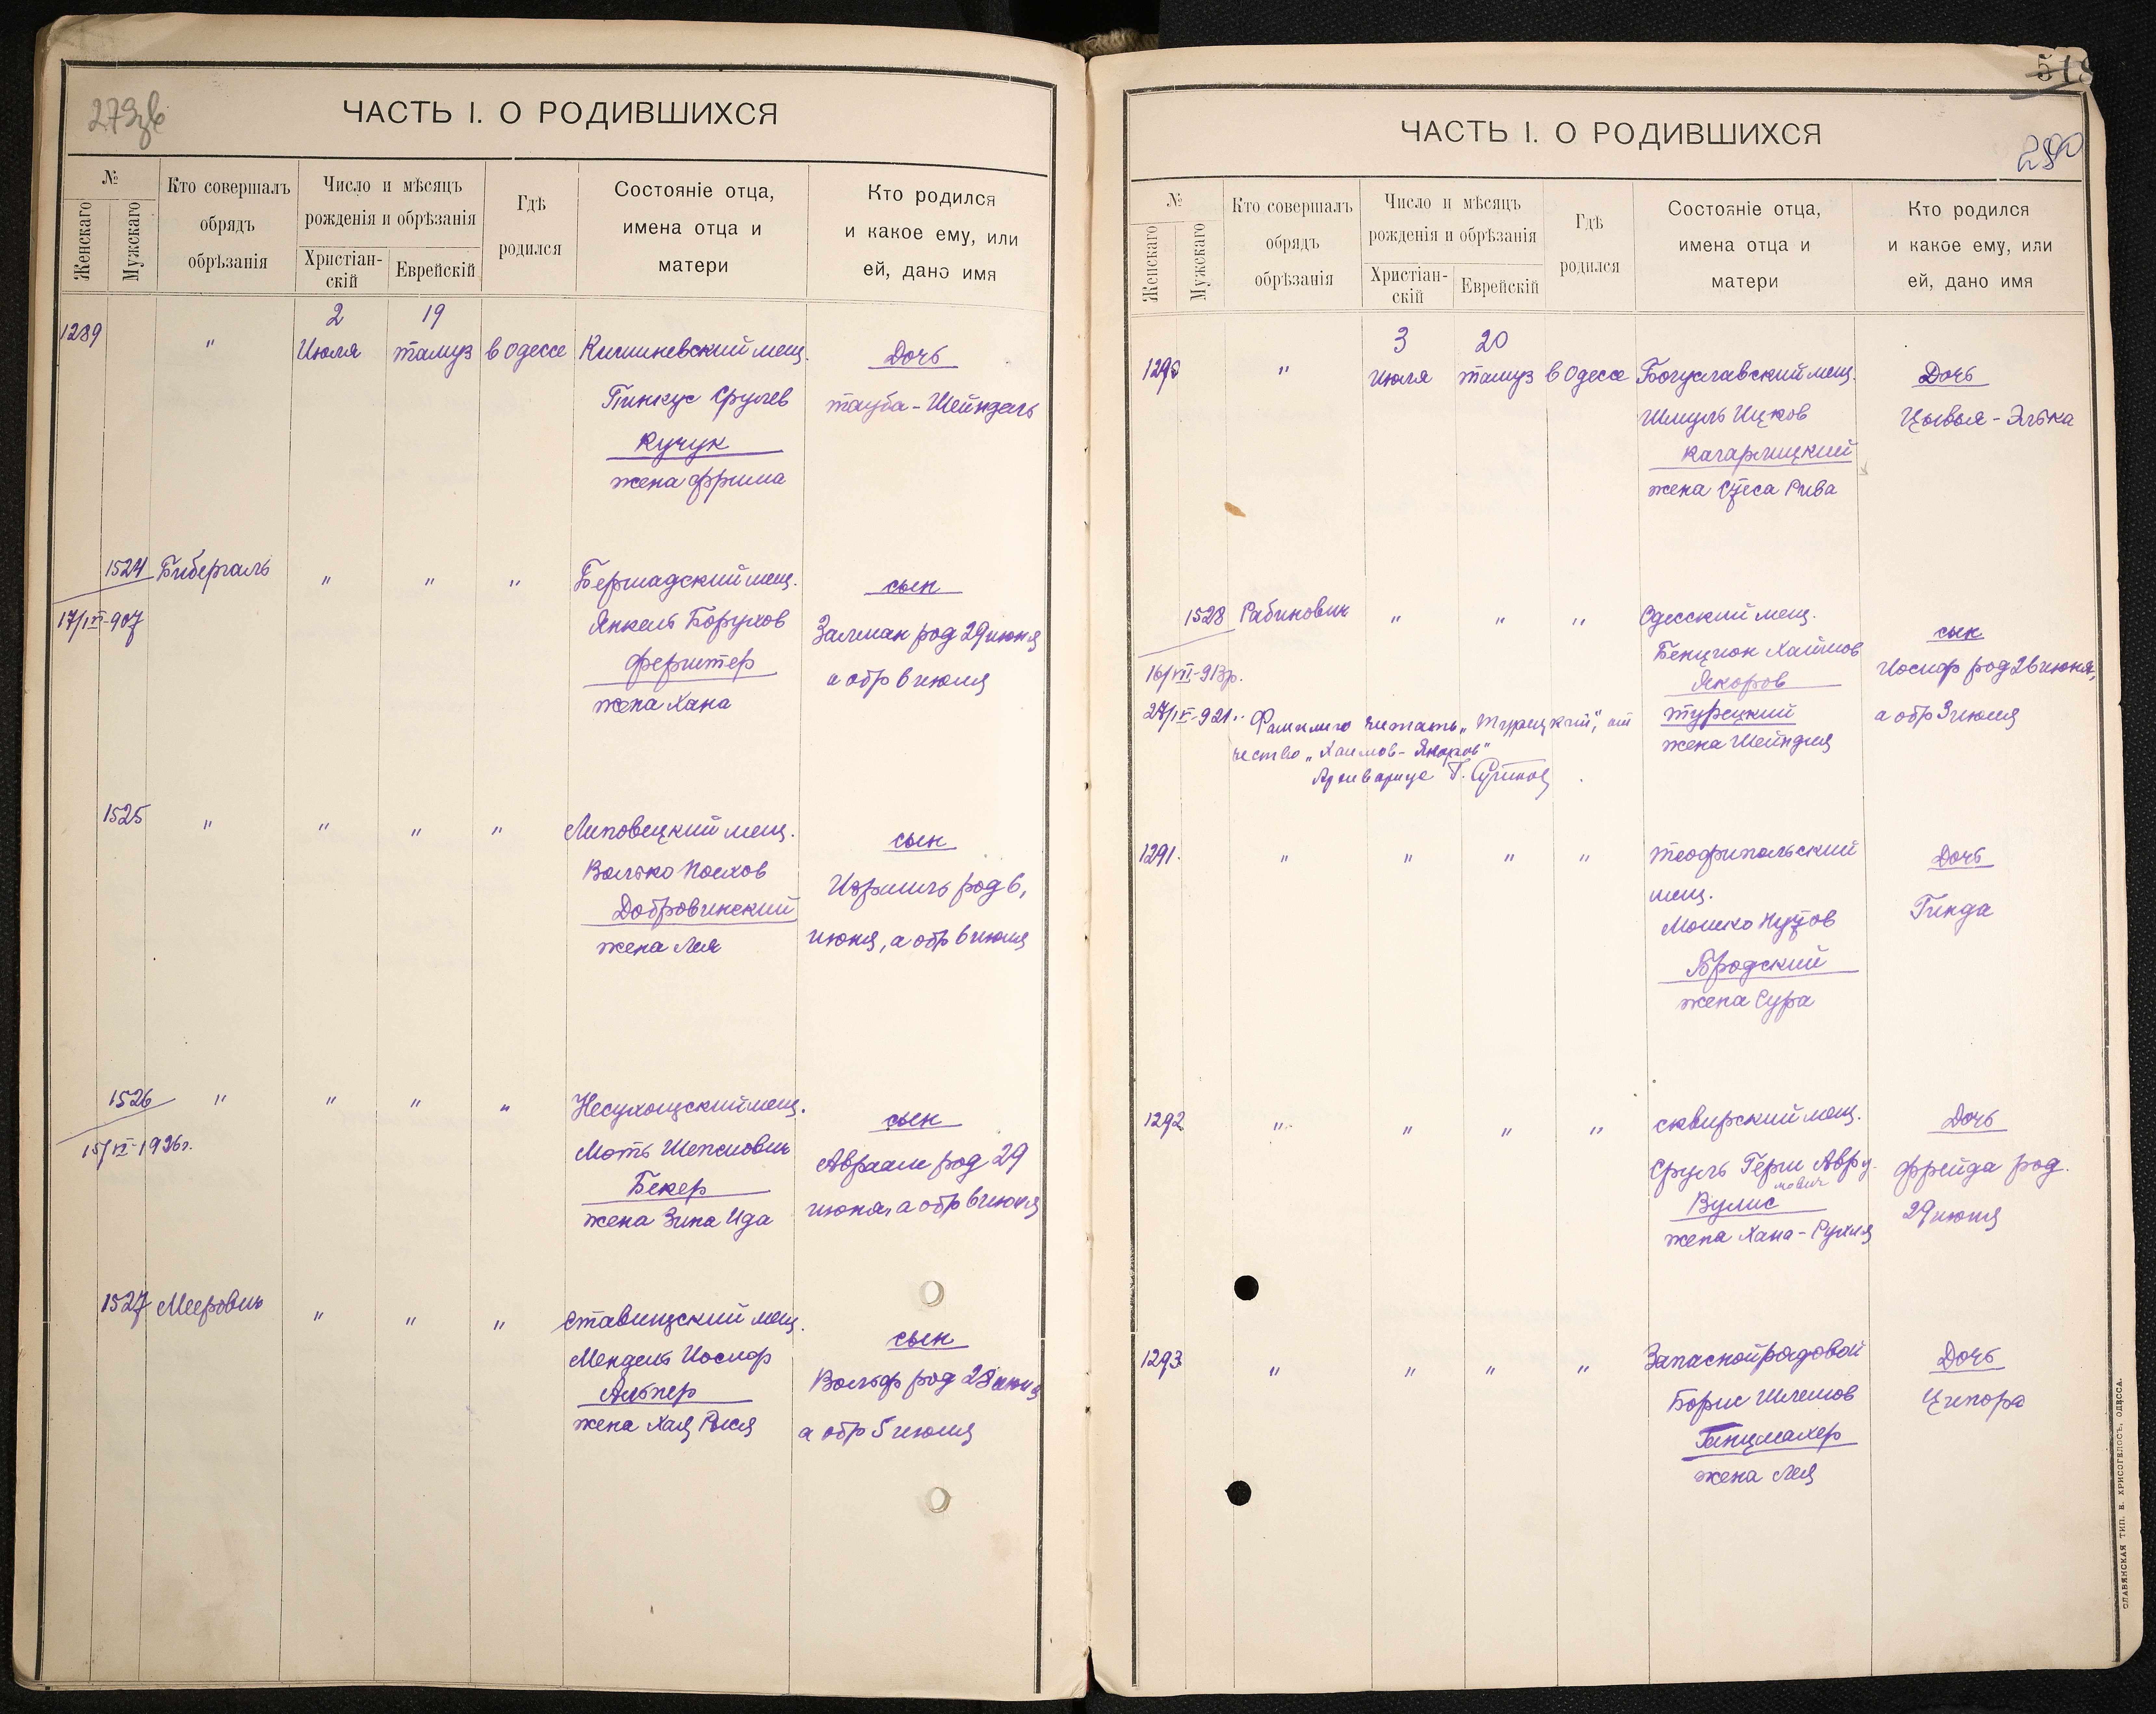 279об
ЧАСТЬ I. О РОДИВШИХСЯ
№
Женскаго
Мужскаго
Кто совершалъ
обрядъ
обрѣзанія
Число и мѣсяцъ
рожденія и обрѣзанія
Христіан-
скій
Еврейскій
Гдѣ
родился
Состояніе отца,
имена отца и
матери
Кто родился
и какое ему, или
ей, дано имя
2 19
1289 " Июля тамуз в Одессе Кишиневский мещ. Дочь
Пинкус Срулев Тауба-Шейндель
Кучук
жена Фрима
1524 Бибергаль " " " Бершадский мещ. сын
17/IX-907
Янкель Борухов Залман род 29 июня
Ферштер а обр 6 июля
жена Хана
1525 " " " " Липовецкий мещ. сын
Волько Посхов Израиль род 6,
Добровинский
жена Лея июня, а обр 6 июля
1526 " " " " Несухоцский мещ. сын
15/VI-1926г.
Моть Шепсиович Авраам род 29
Бекер
жена Зина Ида июня, а обр 6 июля
1527 Меерович " " " Ставищский мещ. сын
Мендель Иосиф
Альпер Вольф род 28 июня
жена Хая Рыся а обр 5 июля
518
280
ЧАСТЬ I. О РОДИВШИХСЯ
№
Женскаго
Мужскаго
Кто совершалъ
обрядъ
обрѣзанія
Число и мѣсяцъ
рожденія и обрѣзанія
Христіан-
скій
Еврейскій
Гдѣ
родился
Состояніе отца,
имена отца и
матери
Кто родился
и какое ему, или
ей, дано имя
3 20
1290 " Июля тамуз в Одессе Богуславский мещ. Дочь
Шмуль Ицков Цывья-Элька
Кагарлицкий
жена Суса Рива
1528 Рабинович " " " Одесский мещ. сын
16/VII-913г.
Бенцион Хаимов Иосиф род 26 июня,
Якоров
27/IV-921. Фамилию читать "Турецкий", от
турецкий а обр 3 июля
чество "Хаимов-Якоров"
жена Шейндля
Архивариус
1291. " " " " Теофипольский Дочь
мещ.
Мошко Нутов Гинда
Бродский
жена Сура
1292 " " " " Сквирский мещ. Дочь
Сруль Герш Авру- Фрейда род.
мович
Вулис 29 июня
жена Хана-Рухля
1293 " " " " Запасной рядовой Дочь
Борис Шлемов Ципора
Танцмахер
жена Лея
СЛАВЯНСКАЯ ТИП. Н. ХРИСОГЕЛОСЪ, ОДЕССА.